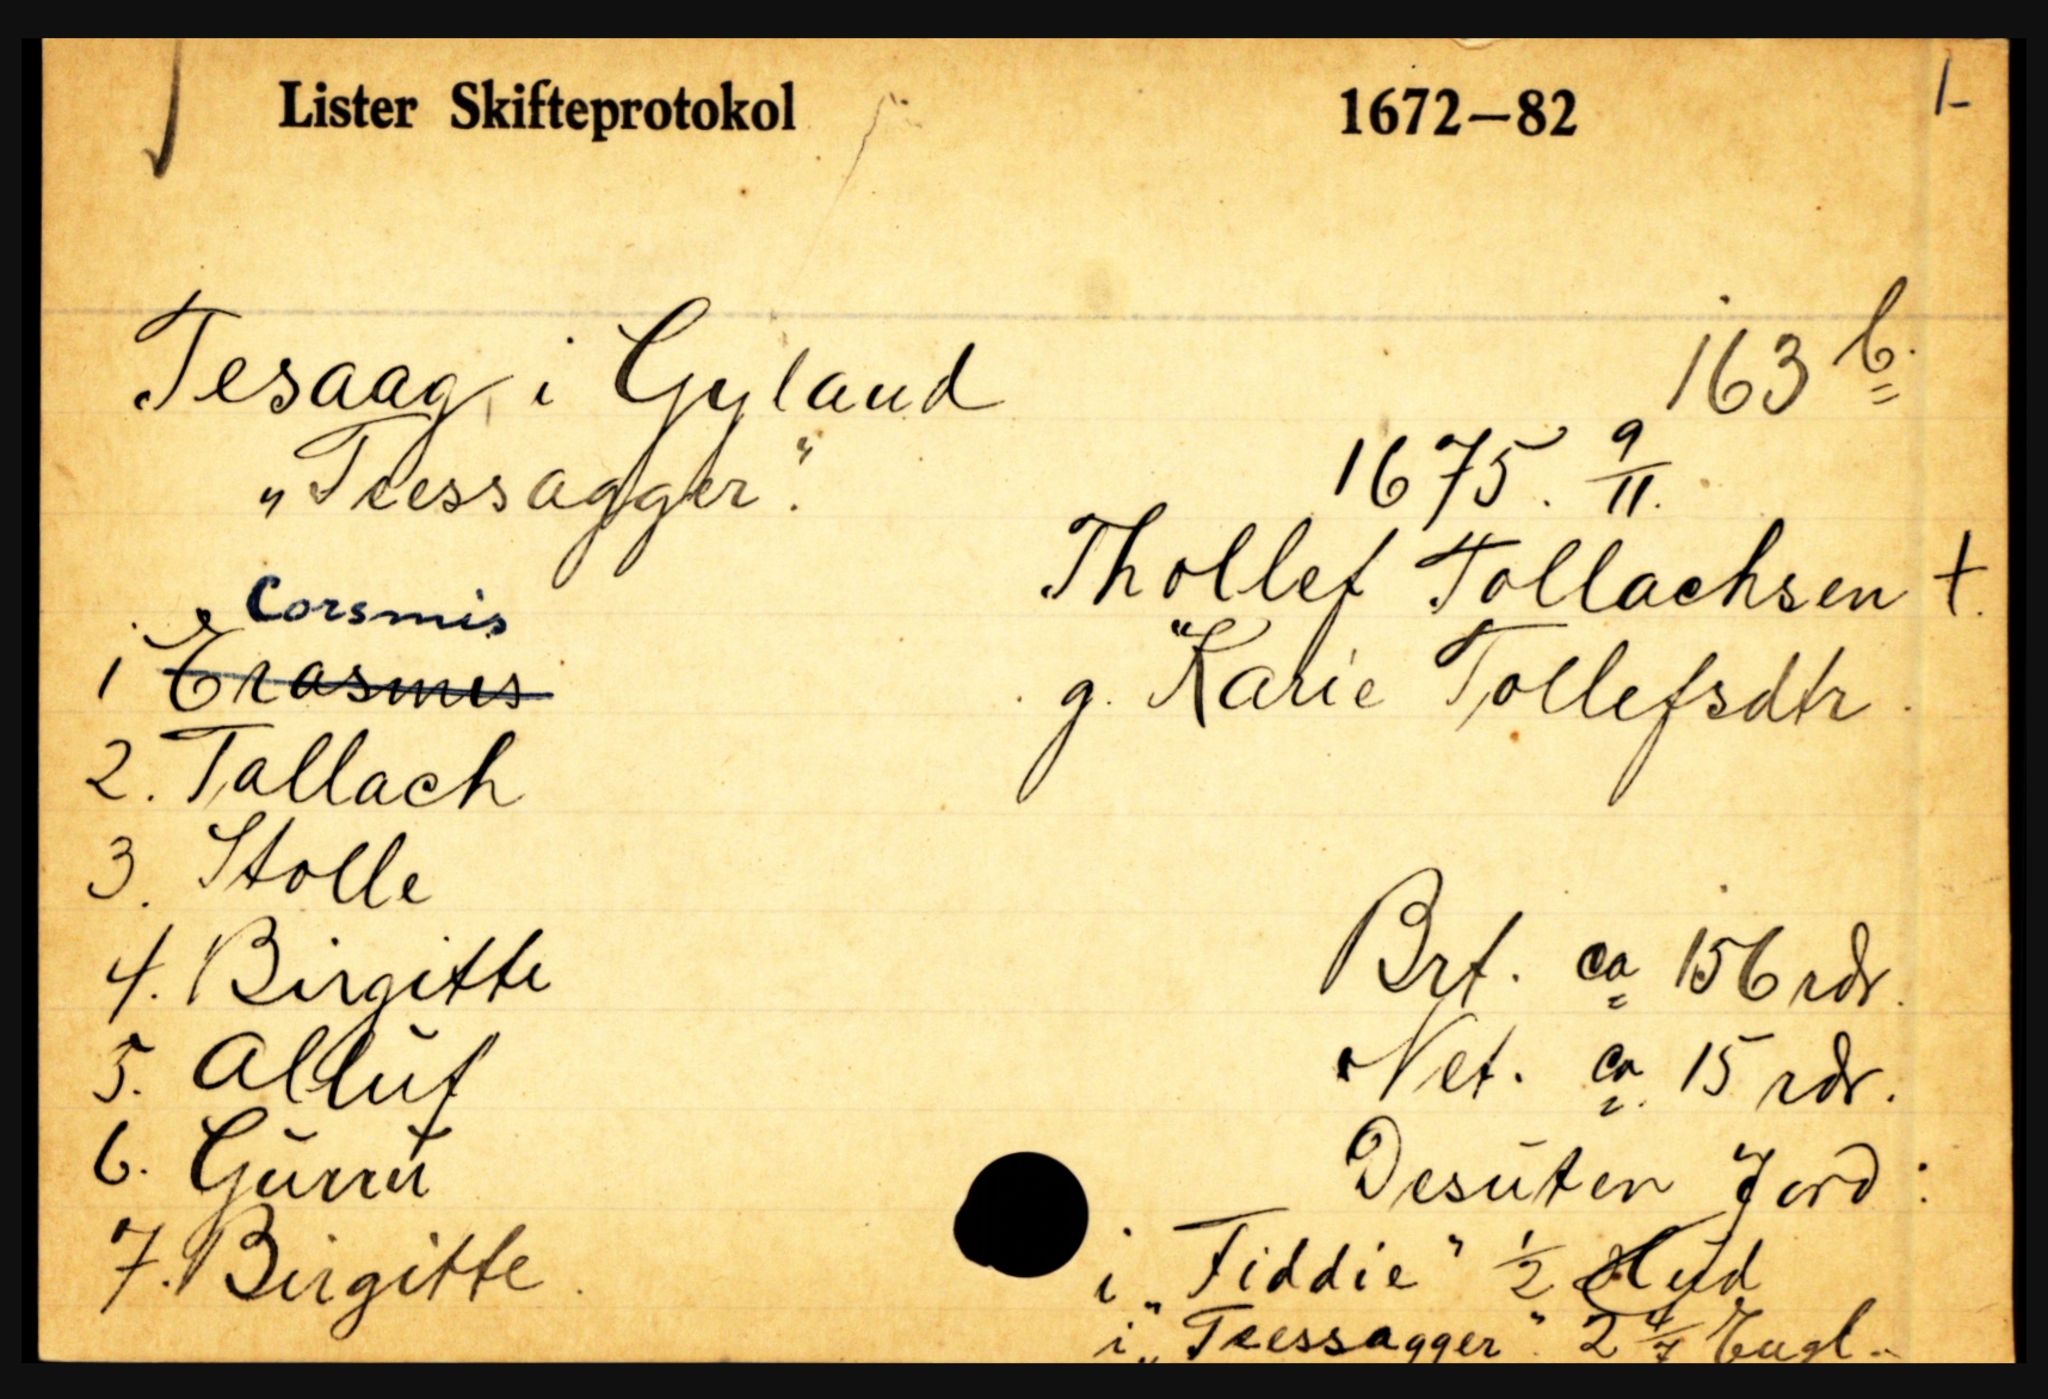 Lister Skifteprotokol 1672—82 1-
Tesaag i Gyland 163 b.
„Teessagger“. 1675. 9/11.
Thollef Tollachsen †.
g. Karie Tollefsdtr.
Corsmis
1 Erasmus
2. Tallach
3. Stolle
4. Birgitte
5. Alluf
6. Gurru
7. Birgitte.
Brt. ca 156 rdr.
Net. ca. 15 rdr.
Desuten Jord:
i „Fiddie“ 1/2 Hud
i „Teessagger“. 2 4/7 Engl.